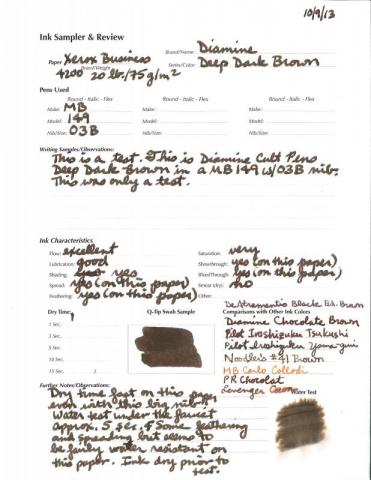 10/9/13
Ink Sampler & Review
Brand/Name: Diamine
Paper Xerox Business Series/Color: Deep Dark Brown
Brand/Weight
4200 20 lb./75g/m²
Pens Used
Round - Italic - Flex Round - Italic - Flex Round - Italic - Flex
Make: MB Make: Make:
Model: 149 Model: Model:
Nib/Size: O3B Nib/Size: Nib/Size:
Writing Samples/Observations:
This is a test. This is Diamine Cult Pens
Deep Dark Brown in a MB 149 w/O3B nib.
This was only a test.
Ink Characteristics
Flow: excellent Saturation: very
Lubrication: good Showthrough: yes (on this paper)
Shading: yes Bleedthrough: yes (on this paper)
Spread: yes (on this paper) Smear (dry): no
Feathering: yes (on this paper) Other:
De Atramentis Black Ed. Brown
Dry Time: Q-Tip Swab Sample Comparisons with Other Ink Colors
1 Sec. Diamine Chocolate Brown
3 Sec. Pilot Iroshizuku Tsukushi
5 Sec. Pilot Iroshizuku Yama-guri
10 Sec. Noodler's #41 Brown
MB Carlo Collodi
15 Sec. PR Chocolat
Further Notes/Observations: Scavenger
Water Test
Dry time fast on this paper
even with this big nib!
Water test under the faucet
approx. 5 sec. Some feathering
and spreading but seems to
be fairly water resistant on
this paper. Ink dry prior to
test.